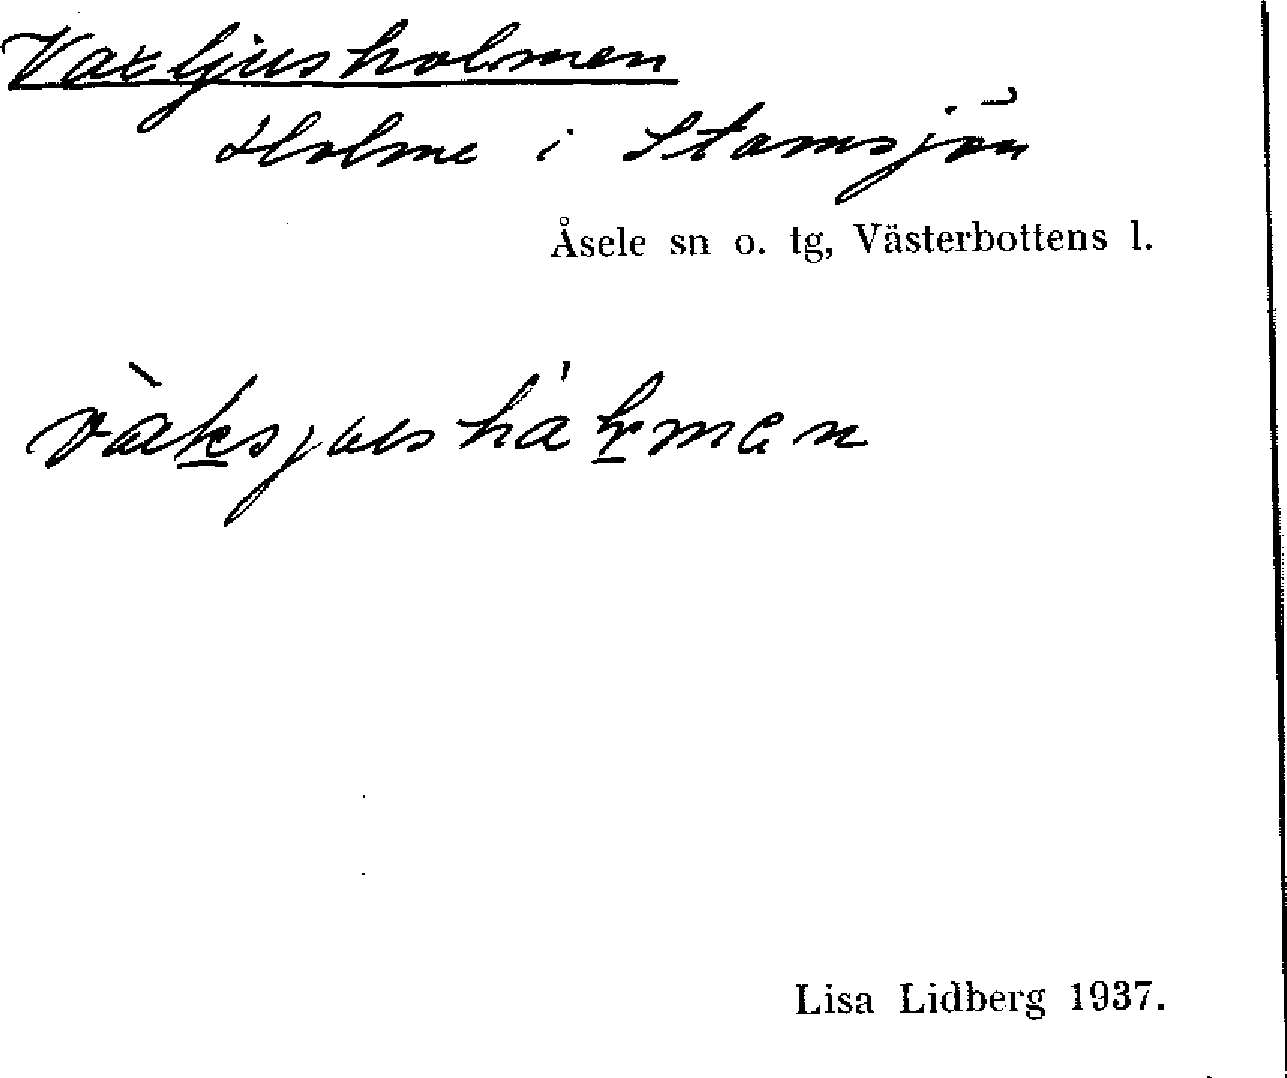 Vaxljusholmen
Holme i Stamsjön
Åsele sn o. tg, Västerbottens l.
Lisa Lidberg 1937.